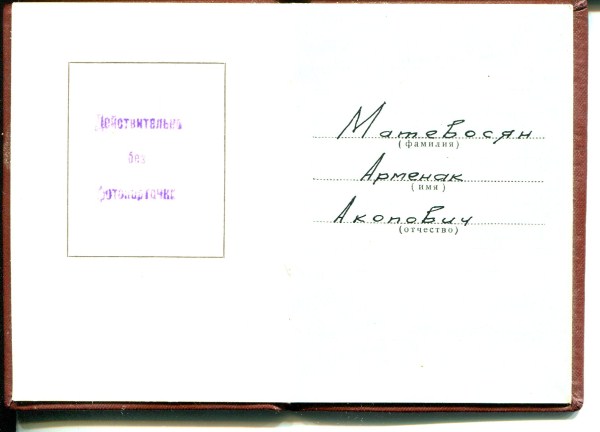 Действительно
без
фотокарточки
Матевосян
(фамилия)
Арменак
(имя)
Акопович
(отчество)